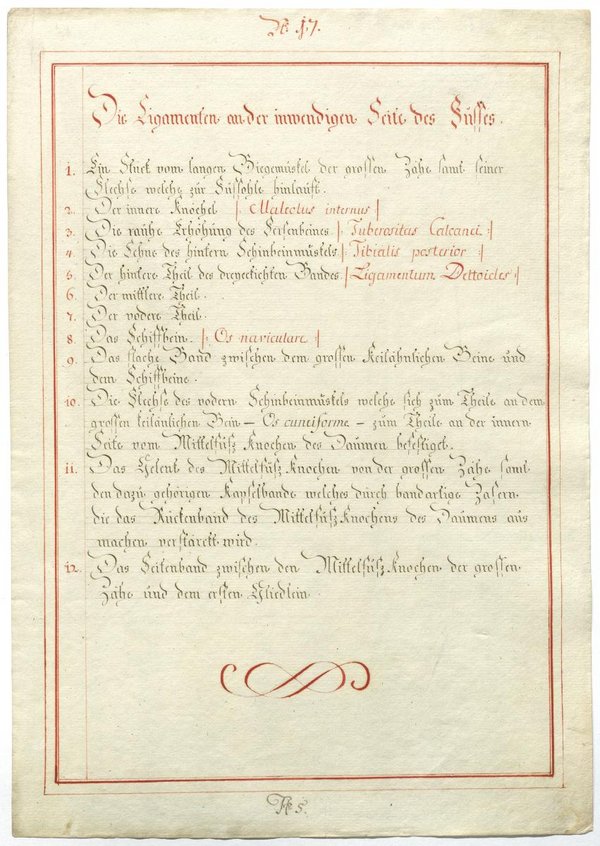 № 17.
Die Ligamenten an der inwendigen Seite des Fusses.
1. Ein Stuck vom langen Biegemuskel der grossen Zähe samt seiner
Flechse welche zür Füssohle hinlaüft.
2. Der innere Knöchel |: Maleolus internus :|
3. Die raühe Erhöhung des Fersenbeines |: Tuberositas Calcanei :|
4. Die Sehne des hintern Schinbeinmüskels |: Tibialis posterior :|
5. Der hintere Theil des dreyeckichten Bandes |: Ligamentum Deltoicles :|
6. Der mittlere Theil.
7. Der vodere Theil.
8. Das Schiffbein. |: Os naviculare :|
9. Das flache Band zwischen dem grossen Keilähnlichen Beine und
dem Schiffbeine.
10. Die Flechse des vodern Schinbeinmüskels welche sich züm Theile an dem
grossen keilänlichen Bein – Os cuniforme – züm Theile an der innern
Seite vom Mittelfüsz Knochen des Daümen befestiget.
11. Das Gelenk des Mittelfüsz Knochen von der grossen Zähe samt
den dazü gehörigen Kapselbande welches dürch bandartige Fasern
die das Rückenband des Mittelfüsz Knochens des Daümens aüs
machen verstärckt wird.
12. Das Seitenband zwischen den Mittelfüsz Knochen der grossen
Zähe und dem ersten Gliedlein
№ 5.